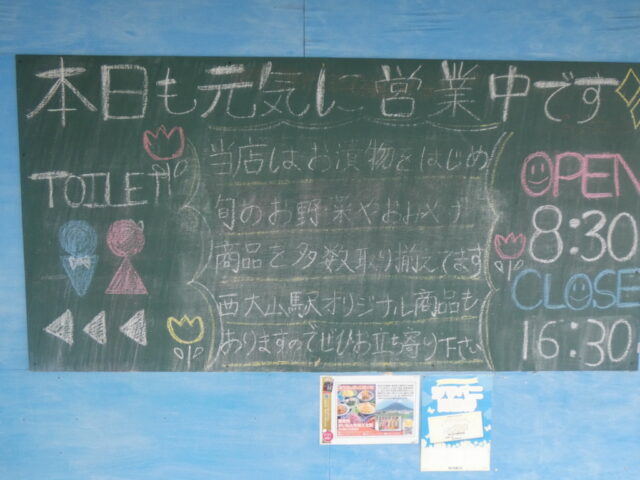 本日も元気に営業中です
TOILET
当店はお漬物をはじめ
旬のお野菜やおみやげ
商品を多数取り揃えてます
西大山駅オリジナル商品も
ありますのでぜひお立ち寄り下さい
OPEN
8:30
CLOSE
16:30